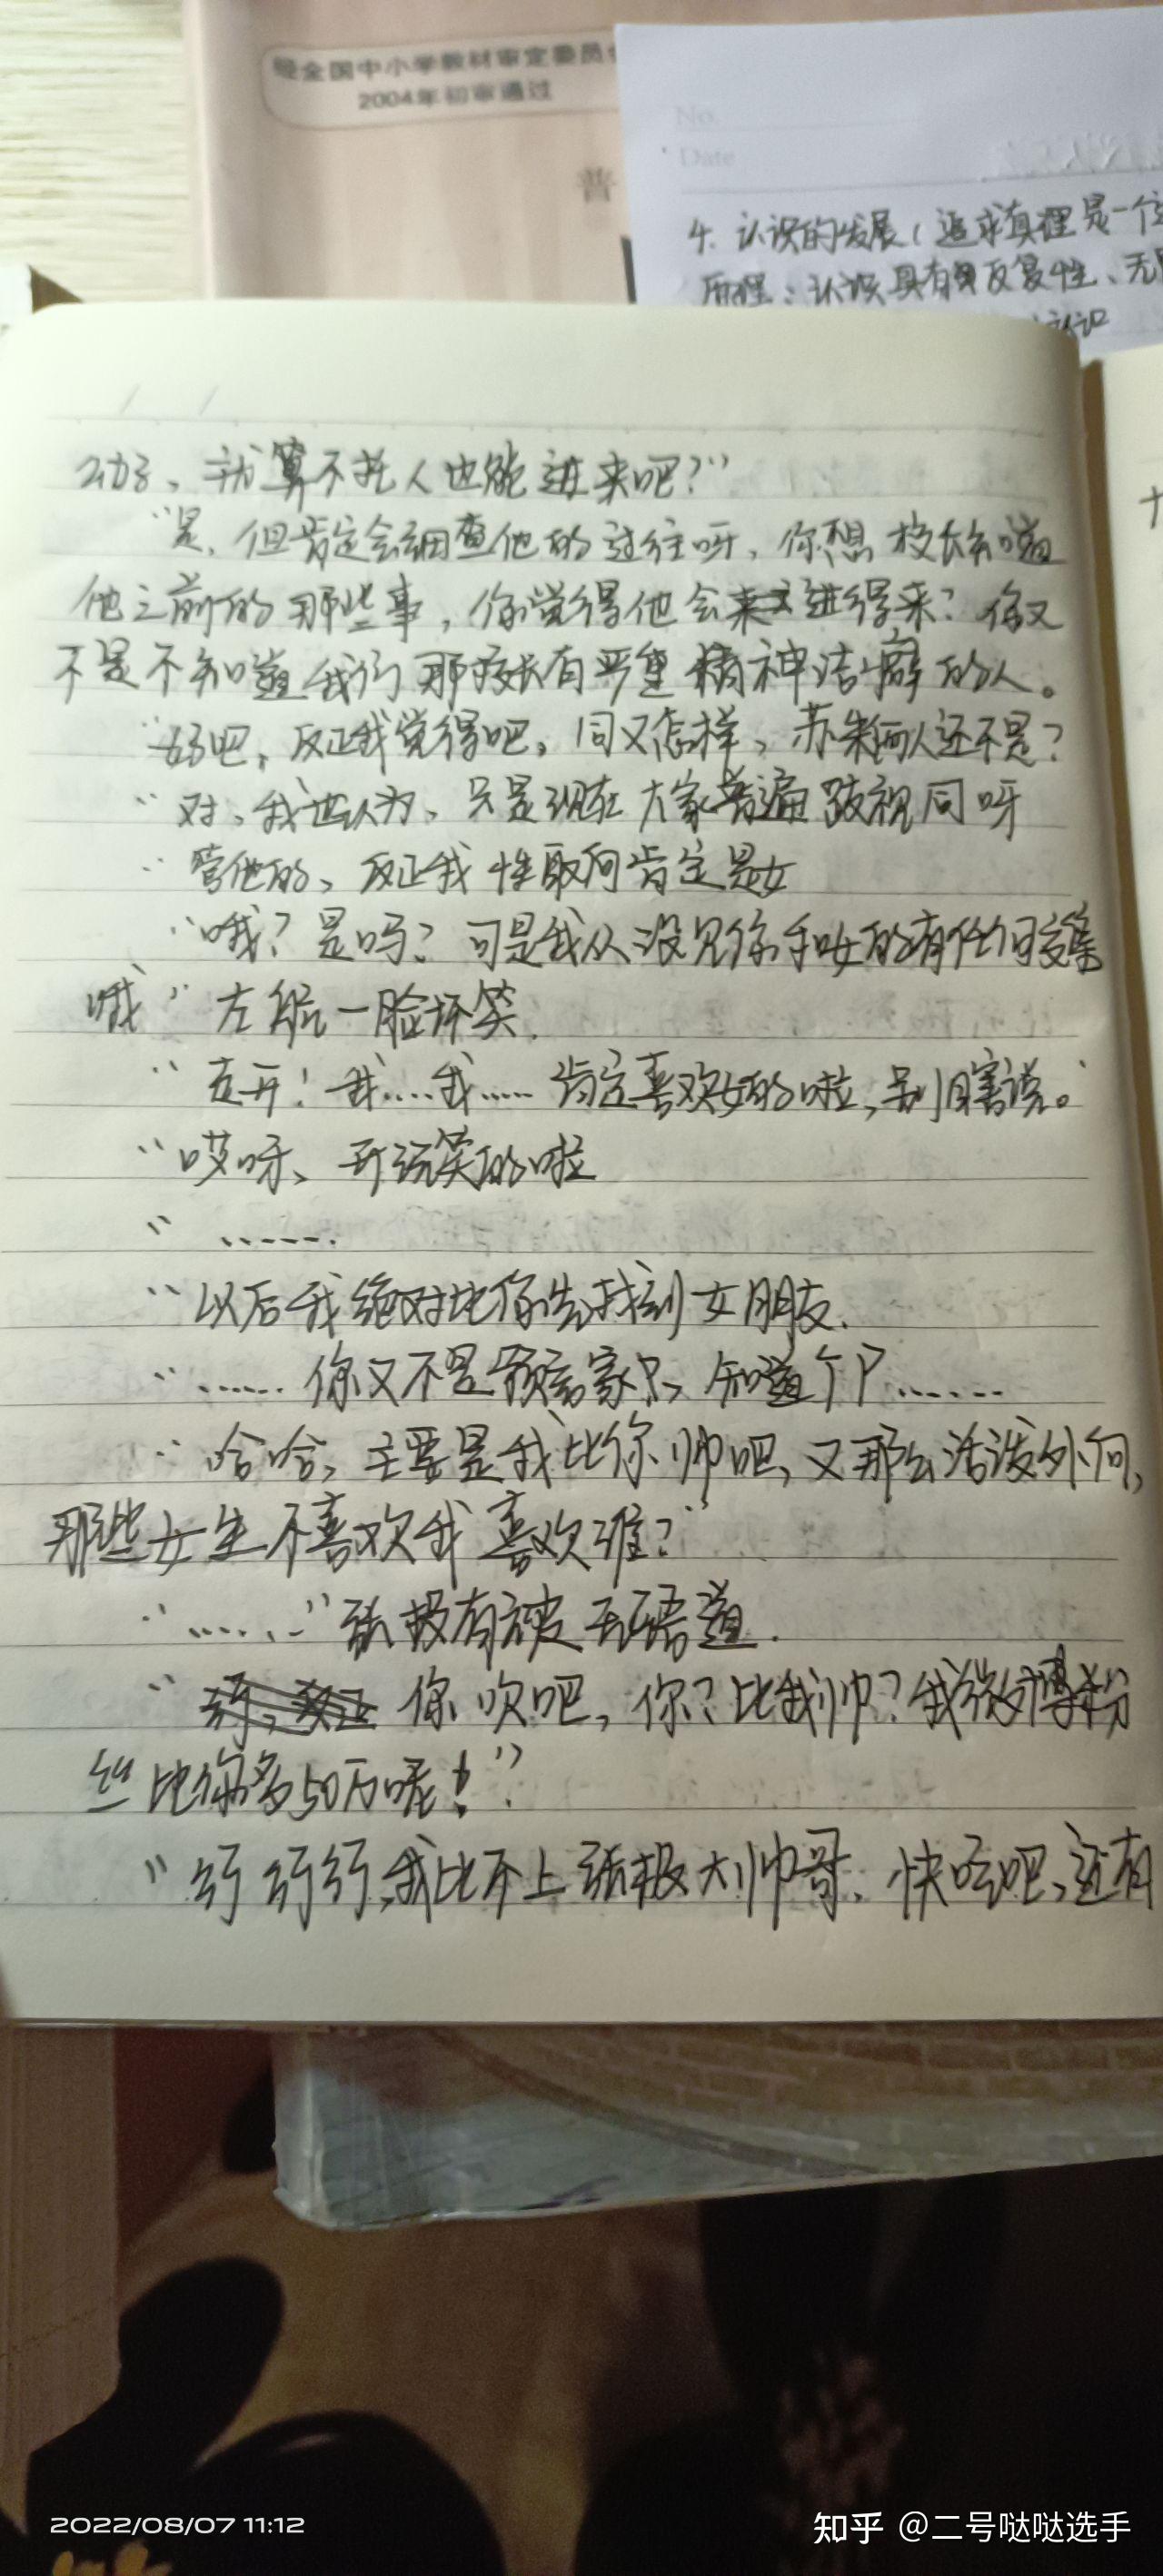 经全国中小学教材审定委员会
2004年初审通过
普
No.
Date
4. 认识的发展（追求真理是一个
原理：认识具有反复性、无
认识
功名、就算不托人也能进来吧？”
“是，但肯定会调查他的过往呀，你想校长知道
他之前的那些事，你觉得他会进得来？你又
不是不知道我们那校长有严重精神洁癖的人。
“好吧，反正我觉得吧，同又怎样，苏朱俩人还不是？
“对，我也认为，只是现在大家普遍歧视同呀
“管他的、反正我性取向肯定是女
“哦？是吗？可是我从没见你和女的有任何交集
哦” 左航一脸坏笑.
“走开！我....我..... 肯定喜欢女的啦，别瞎说。
“哎呀、开玩笑的啦
“ ......
“以后我绝对比你先找到女朋友.
“...... 你又不是预言家只、知道个尸......
“哈哈，主要是我比你帅吧，又那么活泼外向，
那些女生不喜欢我喜欢谁？”
“......” 张极有被无语道.
“你吹吧，你？比我帅？我微博粉
丝比你多50万呢！”
“行行行，我比不上张极大帅哥、快吃吧、还有
2022/08/07 11:12
知乎 @二号哒哒选手